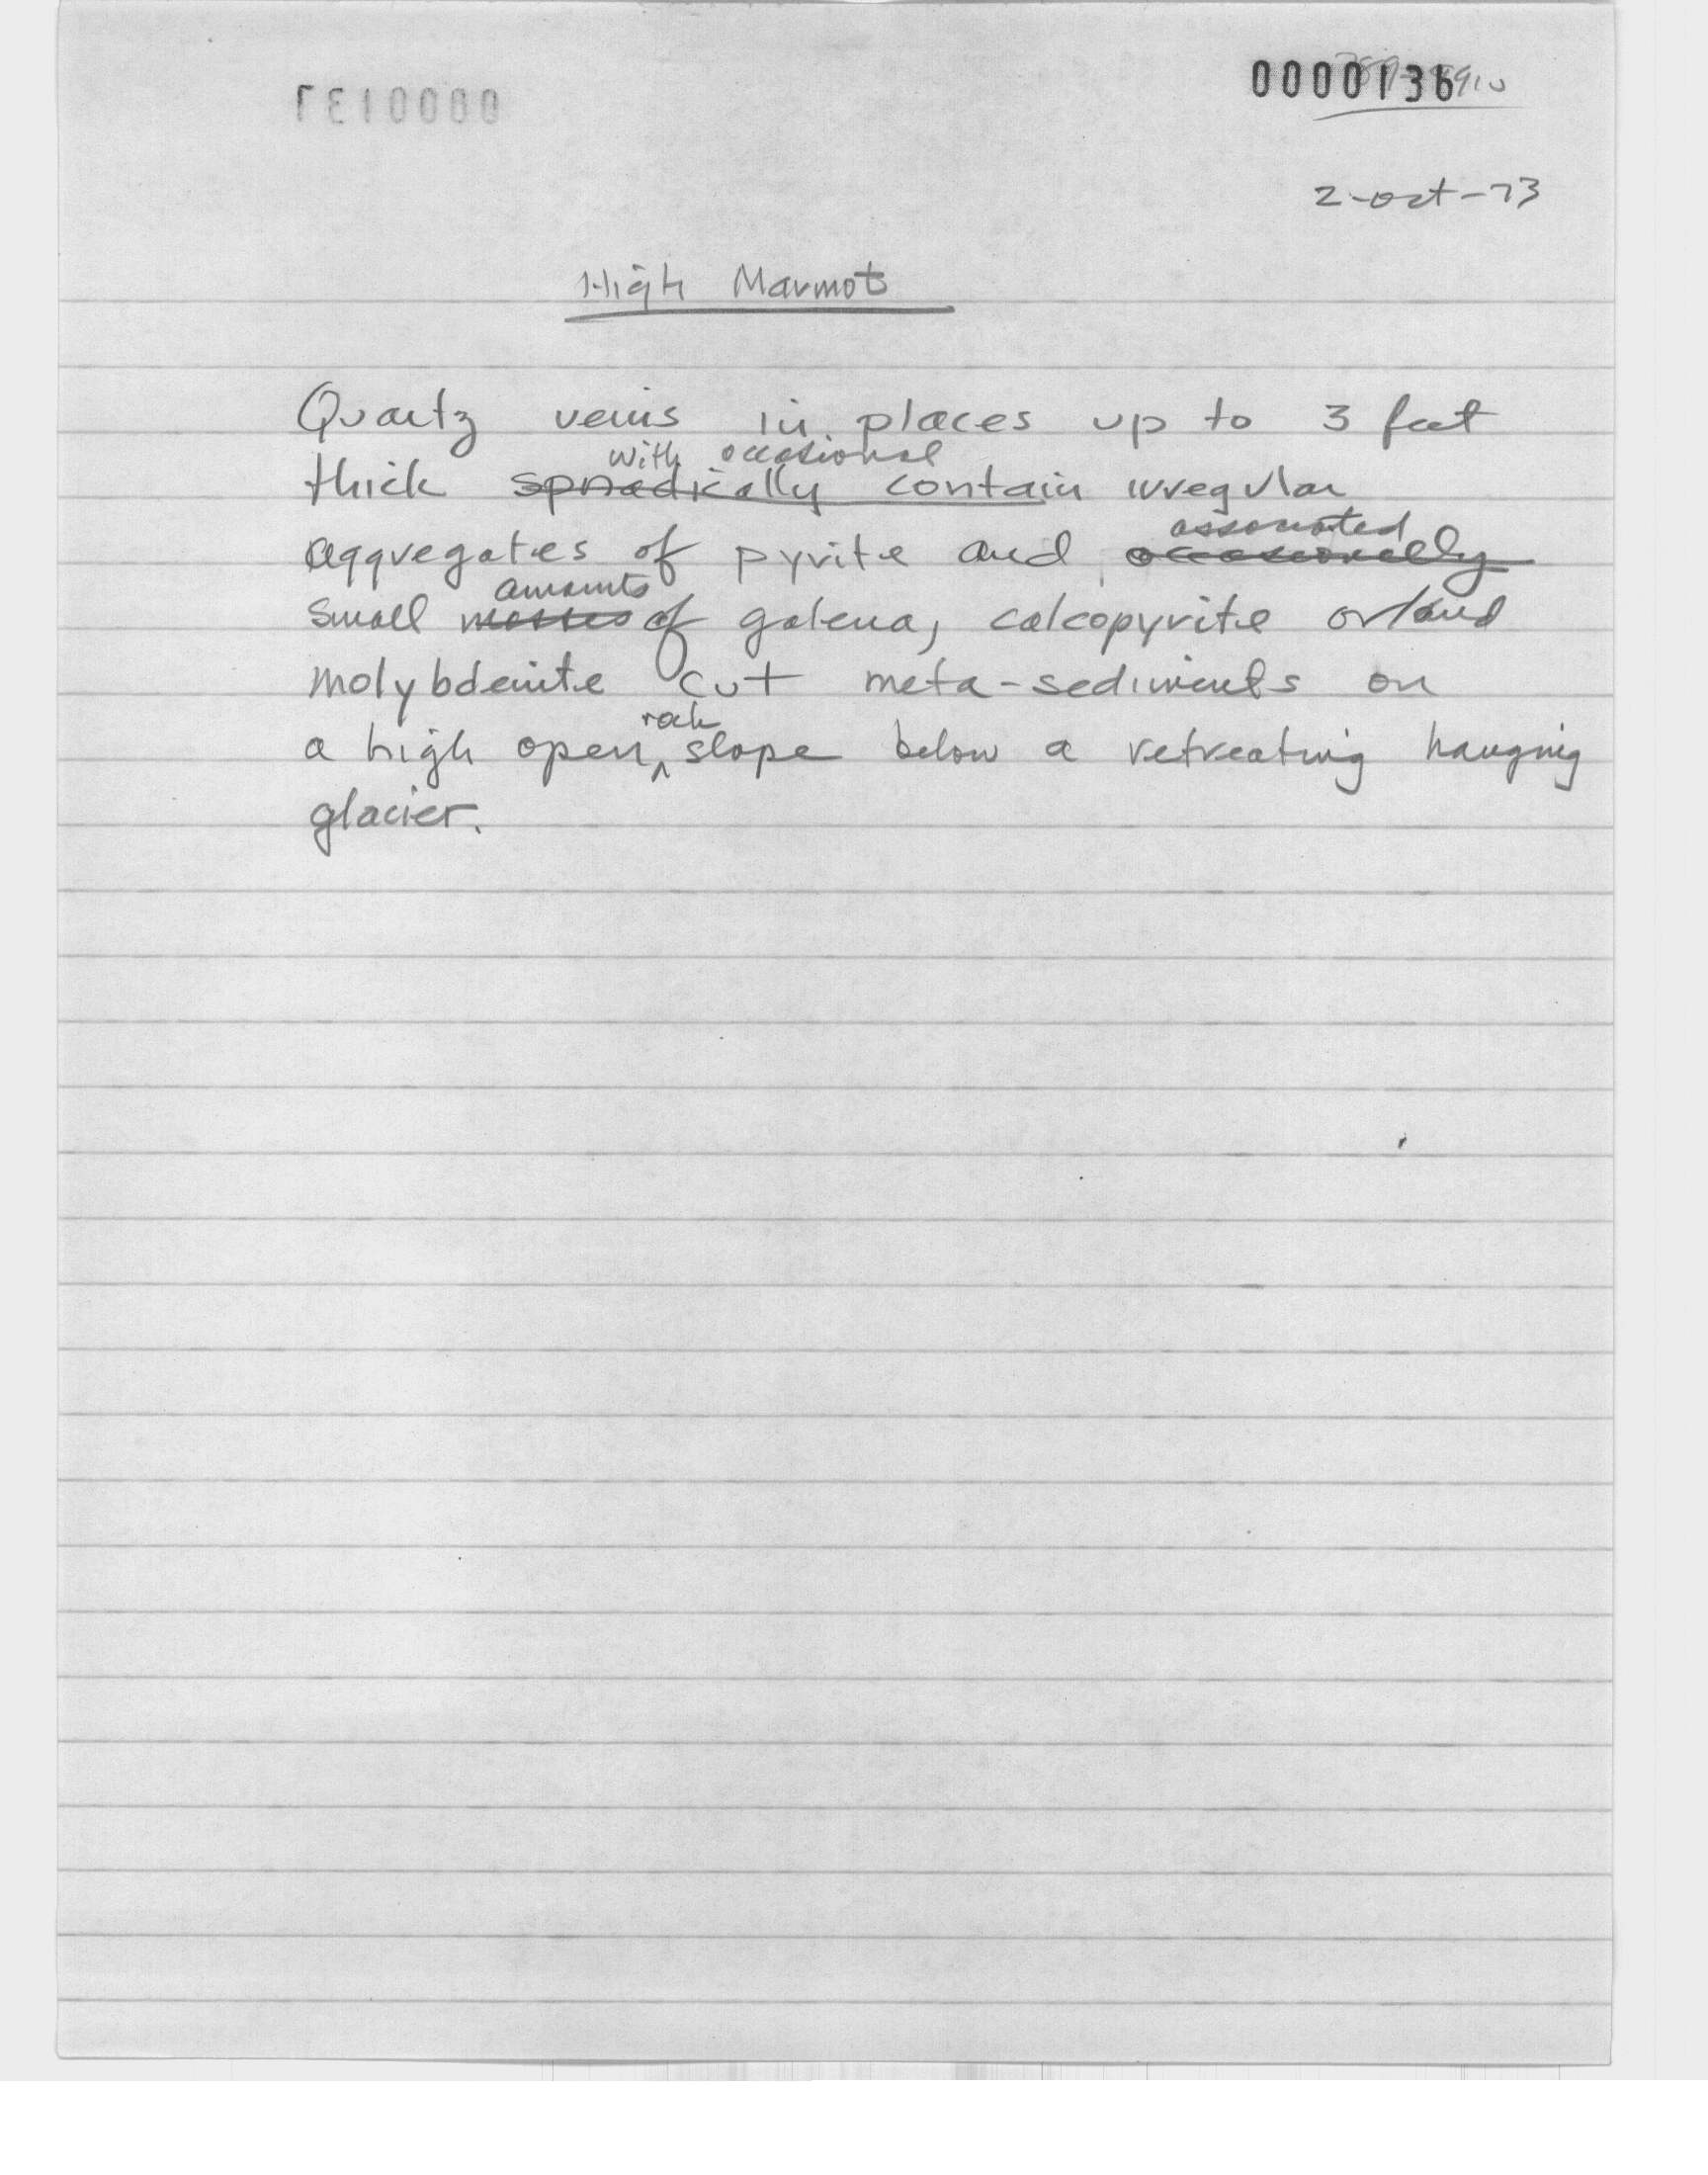 0000136
2-oct-73
High Marmot
Quartz veins in places up to 3 feet
with occasional
thick sporadically contain irregular
associated
aggregates of pyrite and occasionally
amounts
small masses of galena, calcopyrite or/and
molybdenite cut meta-sediments on
rock
a high open slope below a retreating hanging
glacier.